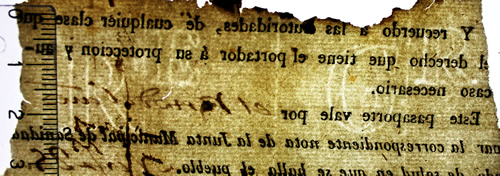 Y recuerdo a las Autoridades, de cualquier clase que
el derecho que tiene el portador á su proteccion y au-
caso necesario.
Este pasaporte vale por
nar la correspondiente nota de la Junta Municipal de Sanidad
de salud en que se halla el pueblo.
1
2
3